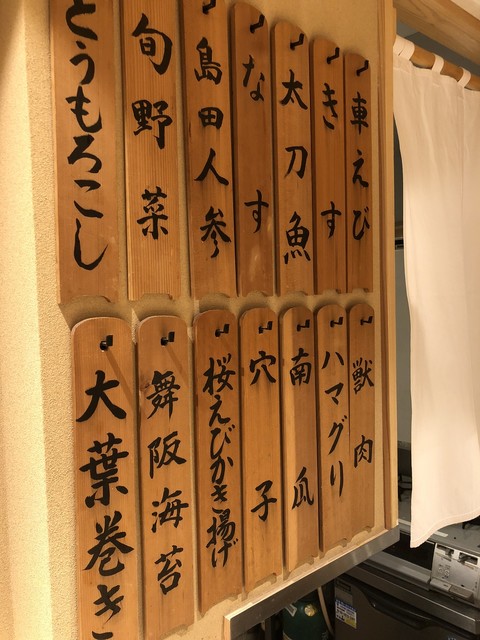 車えび
きす
太刀魚
なす
島田人参
旬野菜
とうもろこし
獣肉
ハマグリ
南瓜
穴子
桜えびかき揚げ
舞阪海苔
大葉巻き